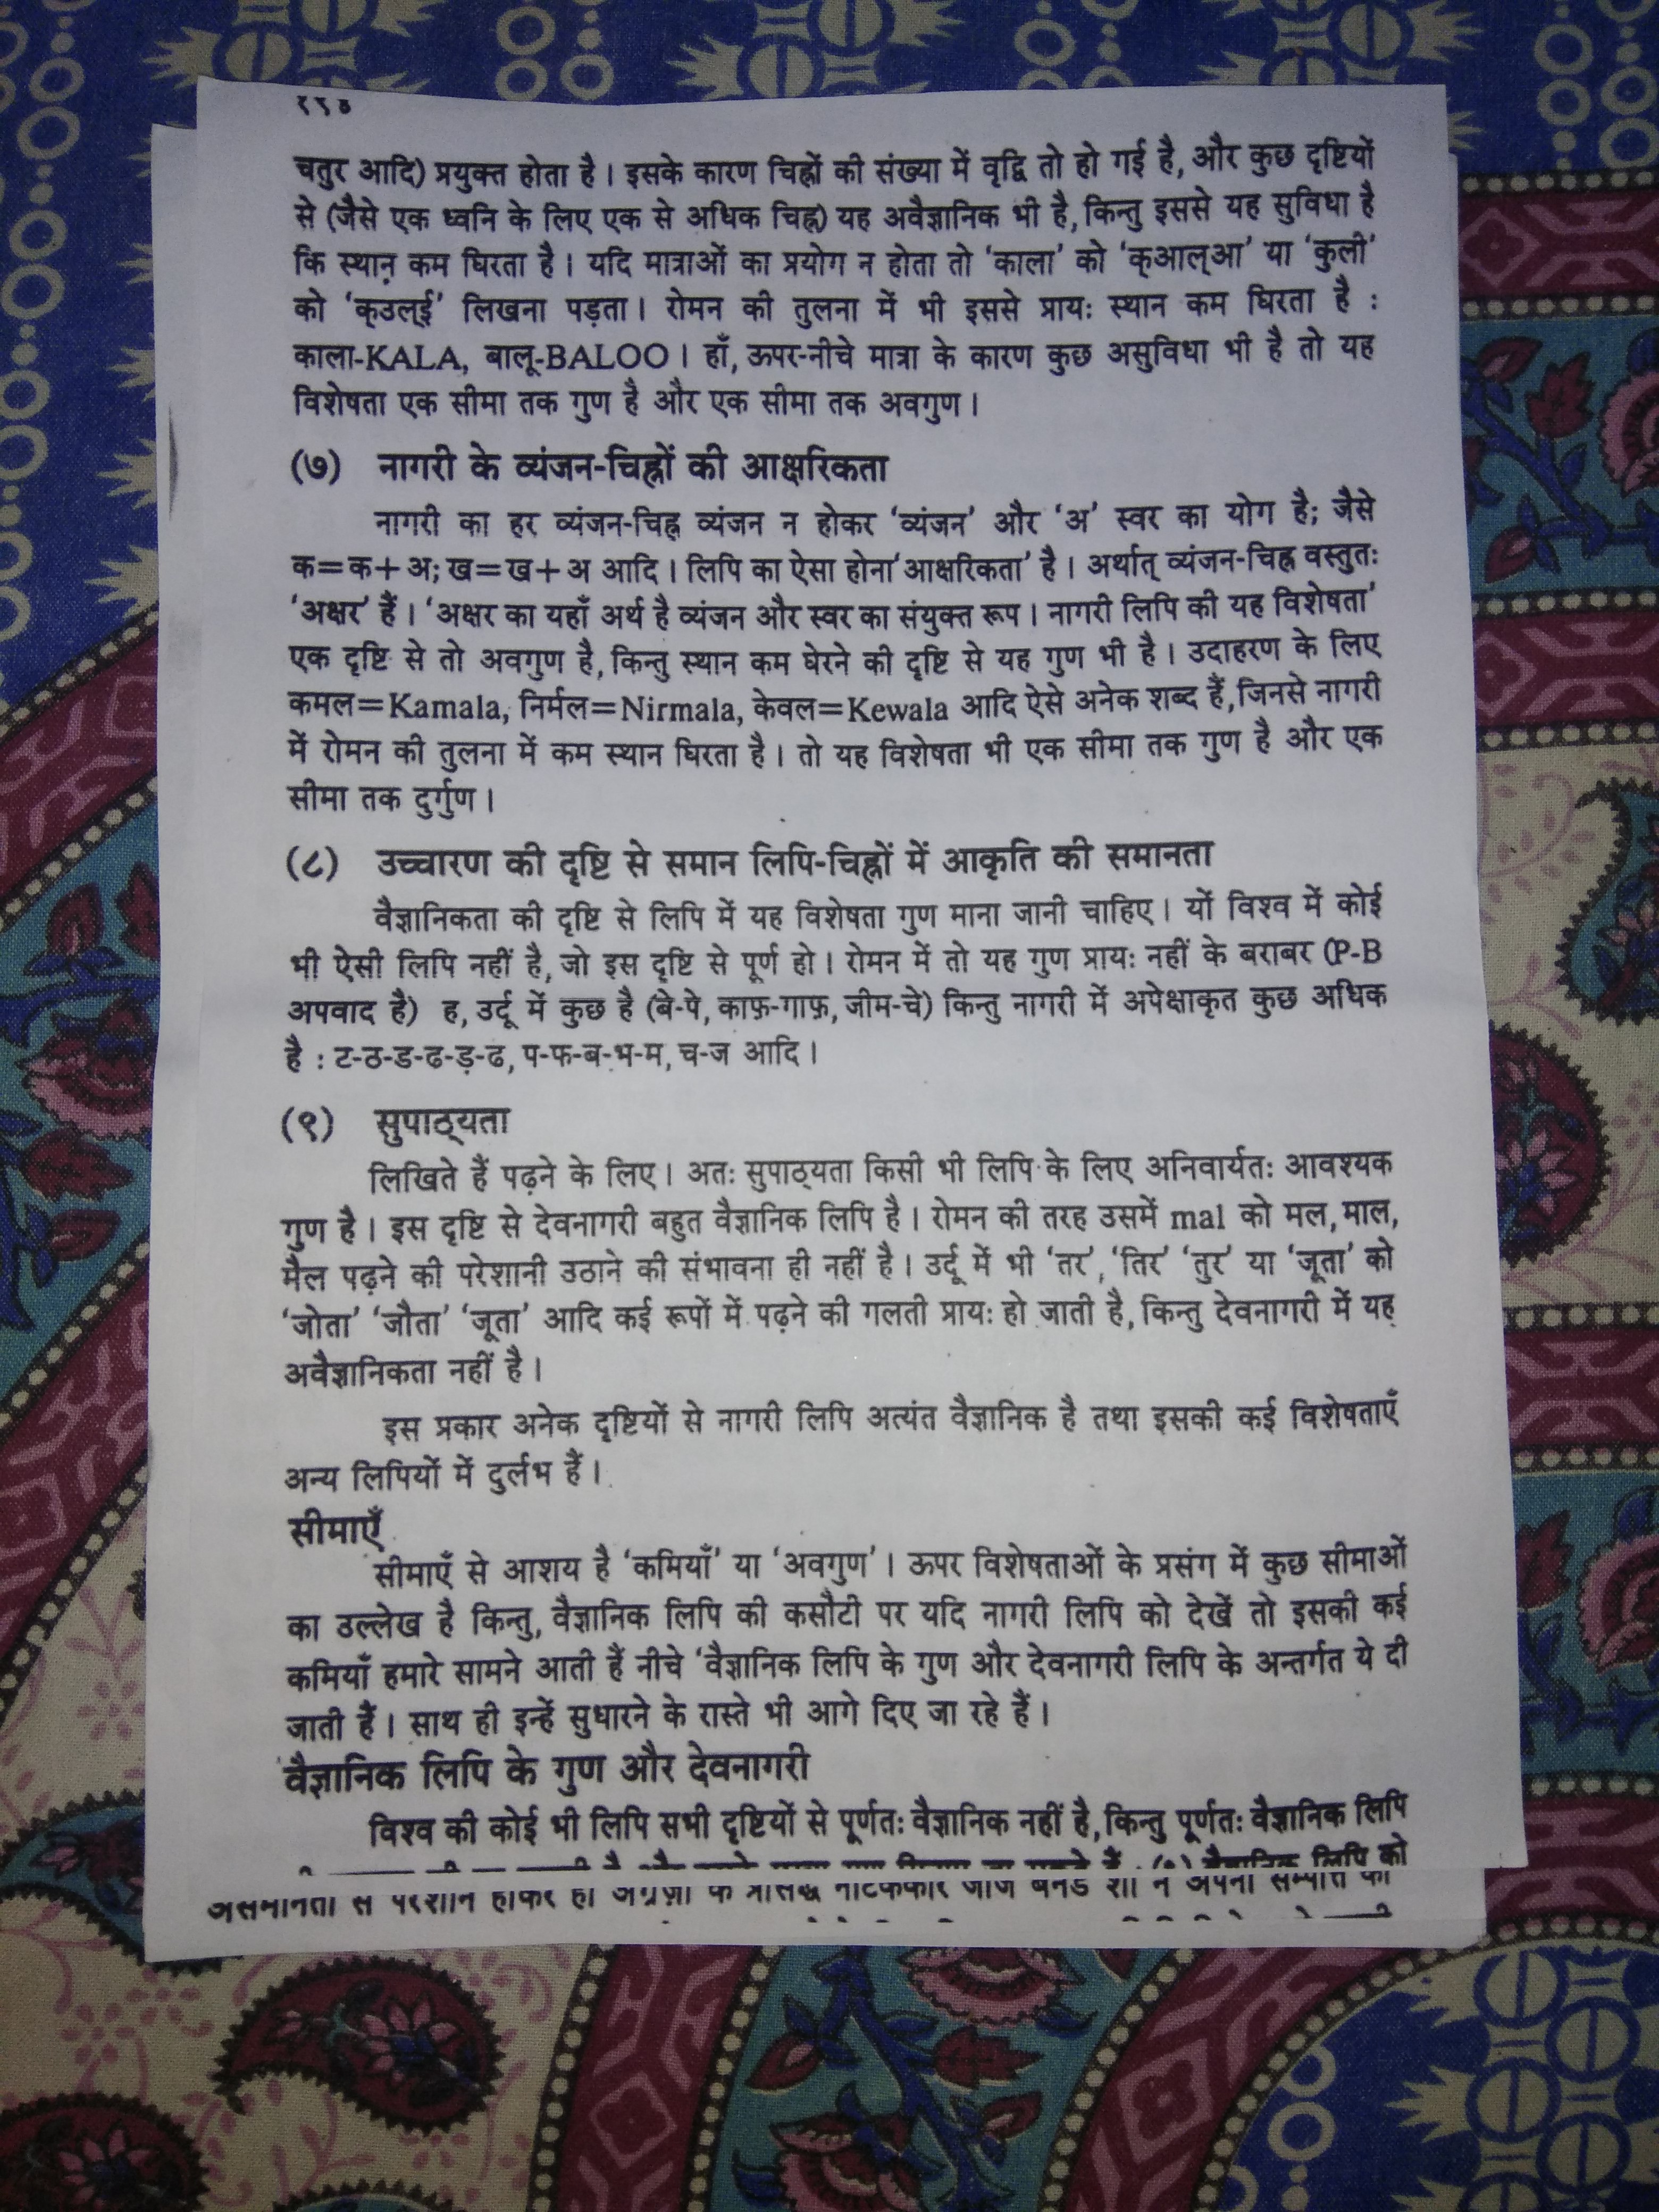 चतुर आदि) प्रयुक्त होता है । इसके कारण चिह्नों की संख्या में वृद्वि तो हो गई है, और कुछ दृष्टियों
से (जैसे एक ध्वनि के लिए एक से अधिक चिह्न) यह अवैज्ञानिक भी है, किन्तु इससे यह सुविधा है
कि स्थान कम घिरता है । यदि मात्राओं का प्रयोग न होता तो ‘काला’ को ‘क्आल्आ’ या ‘कुली’
को ‘क्उल्ई’ लिखना पड़ता । रोमन की तुलना में भी इससे प्रायः स्थान कम घिरता है :
काला-KALA, बालू-BALOO । हाँ, ऊपर-नीचे मात्रा के कारण कुछ असुविधा भी है तो यह
विशेषता एक सीमा तक गुण है और एक सीमा तक अवगुण ।
(७) नागरी के व्यंजन-चिह्नों की आक्षरिकता
नागरी का हर व्यंजन-चिह्न व्यंजन न होकर ‘व्यंजन’ और ‘अ’ स्वर का योग है; जैसे
क=क+अ; ख=ख+अ आदि । लिपि का ऐसा होना ‘आक्षरिकता’ है । अर्थात् व्यंजन-चिह्न वस्तुतः
‘अक्षर’ हैं । ‘अक्षर का यहाँ अर्थ है व्यंजन और स्वर का संयुक्त रूप । नागरी लिपि की यह विशेषता’
एक दृष्टि से तो अवगुण है, किन्तु स्थान कम घेरने की दृष्टि से यह गुण भी है । उदाहरण के लिए
कमल=Kamala, निर्मल=Nirmala, केवल=Kewala आदि ऐसे अनेक शब्द हैं, जिनसे नागरी
में रोमन की तुलना में कम स्थान घिरता है । तो यह विशेषता भी एक सीमा तक गुण है और एक
सीमा तक दुर्गुण ।
(८) उच्चारण की दृष्टि से समान लिपि-चिह्नों में आकृति की समानता
वैज्ञानिकता की दृष्टि से लिपि में यह विशेषता गुण माना जानी चाहिए । यों विश्व में कोई
भी ऐसी लिपि नहीं है, जो इस दृष्टि से पूर्ण हो । रोमन में तो यह गुण प्रायः नहीं के बराबर (P-B
अपवाद है) ह, उर्दू में कुछ है (बे-पे, काफ़-गाफ़, जीम-चे) किन्तु नागरी में अपेक्षाकृत कुछ अधिक
है : ट-ठ-ड-ढ-ड़-ढ, प-फ-ब-भ-म, च-ज आदि ।
(९) सुपाठ्यता
लिखिते हैं पढ़ने के लिए । अतः सुपाठ्यता किसी भी लिपि के लिए अनिवार्यतः आवश्यक
गुण है । इस दृष्टि से देवनागरी बहुत वैज्ञानिक लिपि है । रोमन की तरह उसमें mal को मल, माल,
मैल पढ़ने की परेशानी उठाने की संभावना ही नहीं है । उर्दू में भी ‘तर’, ‘तिर’ ‘तुर’ या ‘जूता’ को
‘जोता’ ‘जौता’ ‘जूता’ आदि कई रूपों में पढ़ने की गलती प्रायः हो जाती है, किन्तु देवनागरी में यह
अवैज्ञानिकता नहीं है ।
इस प्रकार अनेक दृष्टियों से नागरी लिपि अत्यंत वैज्ञानिक है तथा इसकी कई विशेषताएँ
अन्य लिपियों में दुर्लभ हैं ।
सीमाएँ
सीमाएँ से आशय है ‘कमियाँ’ या ‘अवगुण’ । ऊपर विशेषताओं के प्रसंग में कुछ सीमाओं
का उल्लेख है किन्तु, वैज्ञानिक लिपि की कसौटी पर यदि नागरी लिपि को देखें तो इसकी कई
कमियाँ हमारे सामने आती हैं नीचे ‘वैज्ञानिक लिपि के गुण और देवनागरी लिपि के अन्तर्गत ये दी
जाती हैं । साथ ही इन्हें सुधारने के रास्ते भी आगे दिए जा रहे हैं ।
वैज्ञानिक लिपि के गुण और देवनागरी
विश्व की कोई भी लिपि सभी दृष्टियों से पूर्णतः वैज्ञानिक नहीं है, किन्तु पूर्णतः वैज्ञानिक लिपि
लिपि को
असमानता से परेशान होकर ही अंग्रेज़ी के प्रसिद्ध नाटककार जॉर्ज बर्नर्ड शॉ ने अपनी सम्पत्ति का